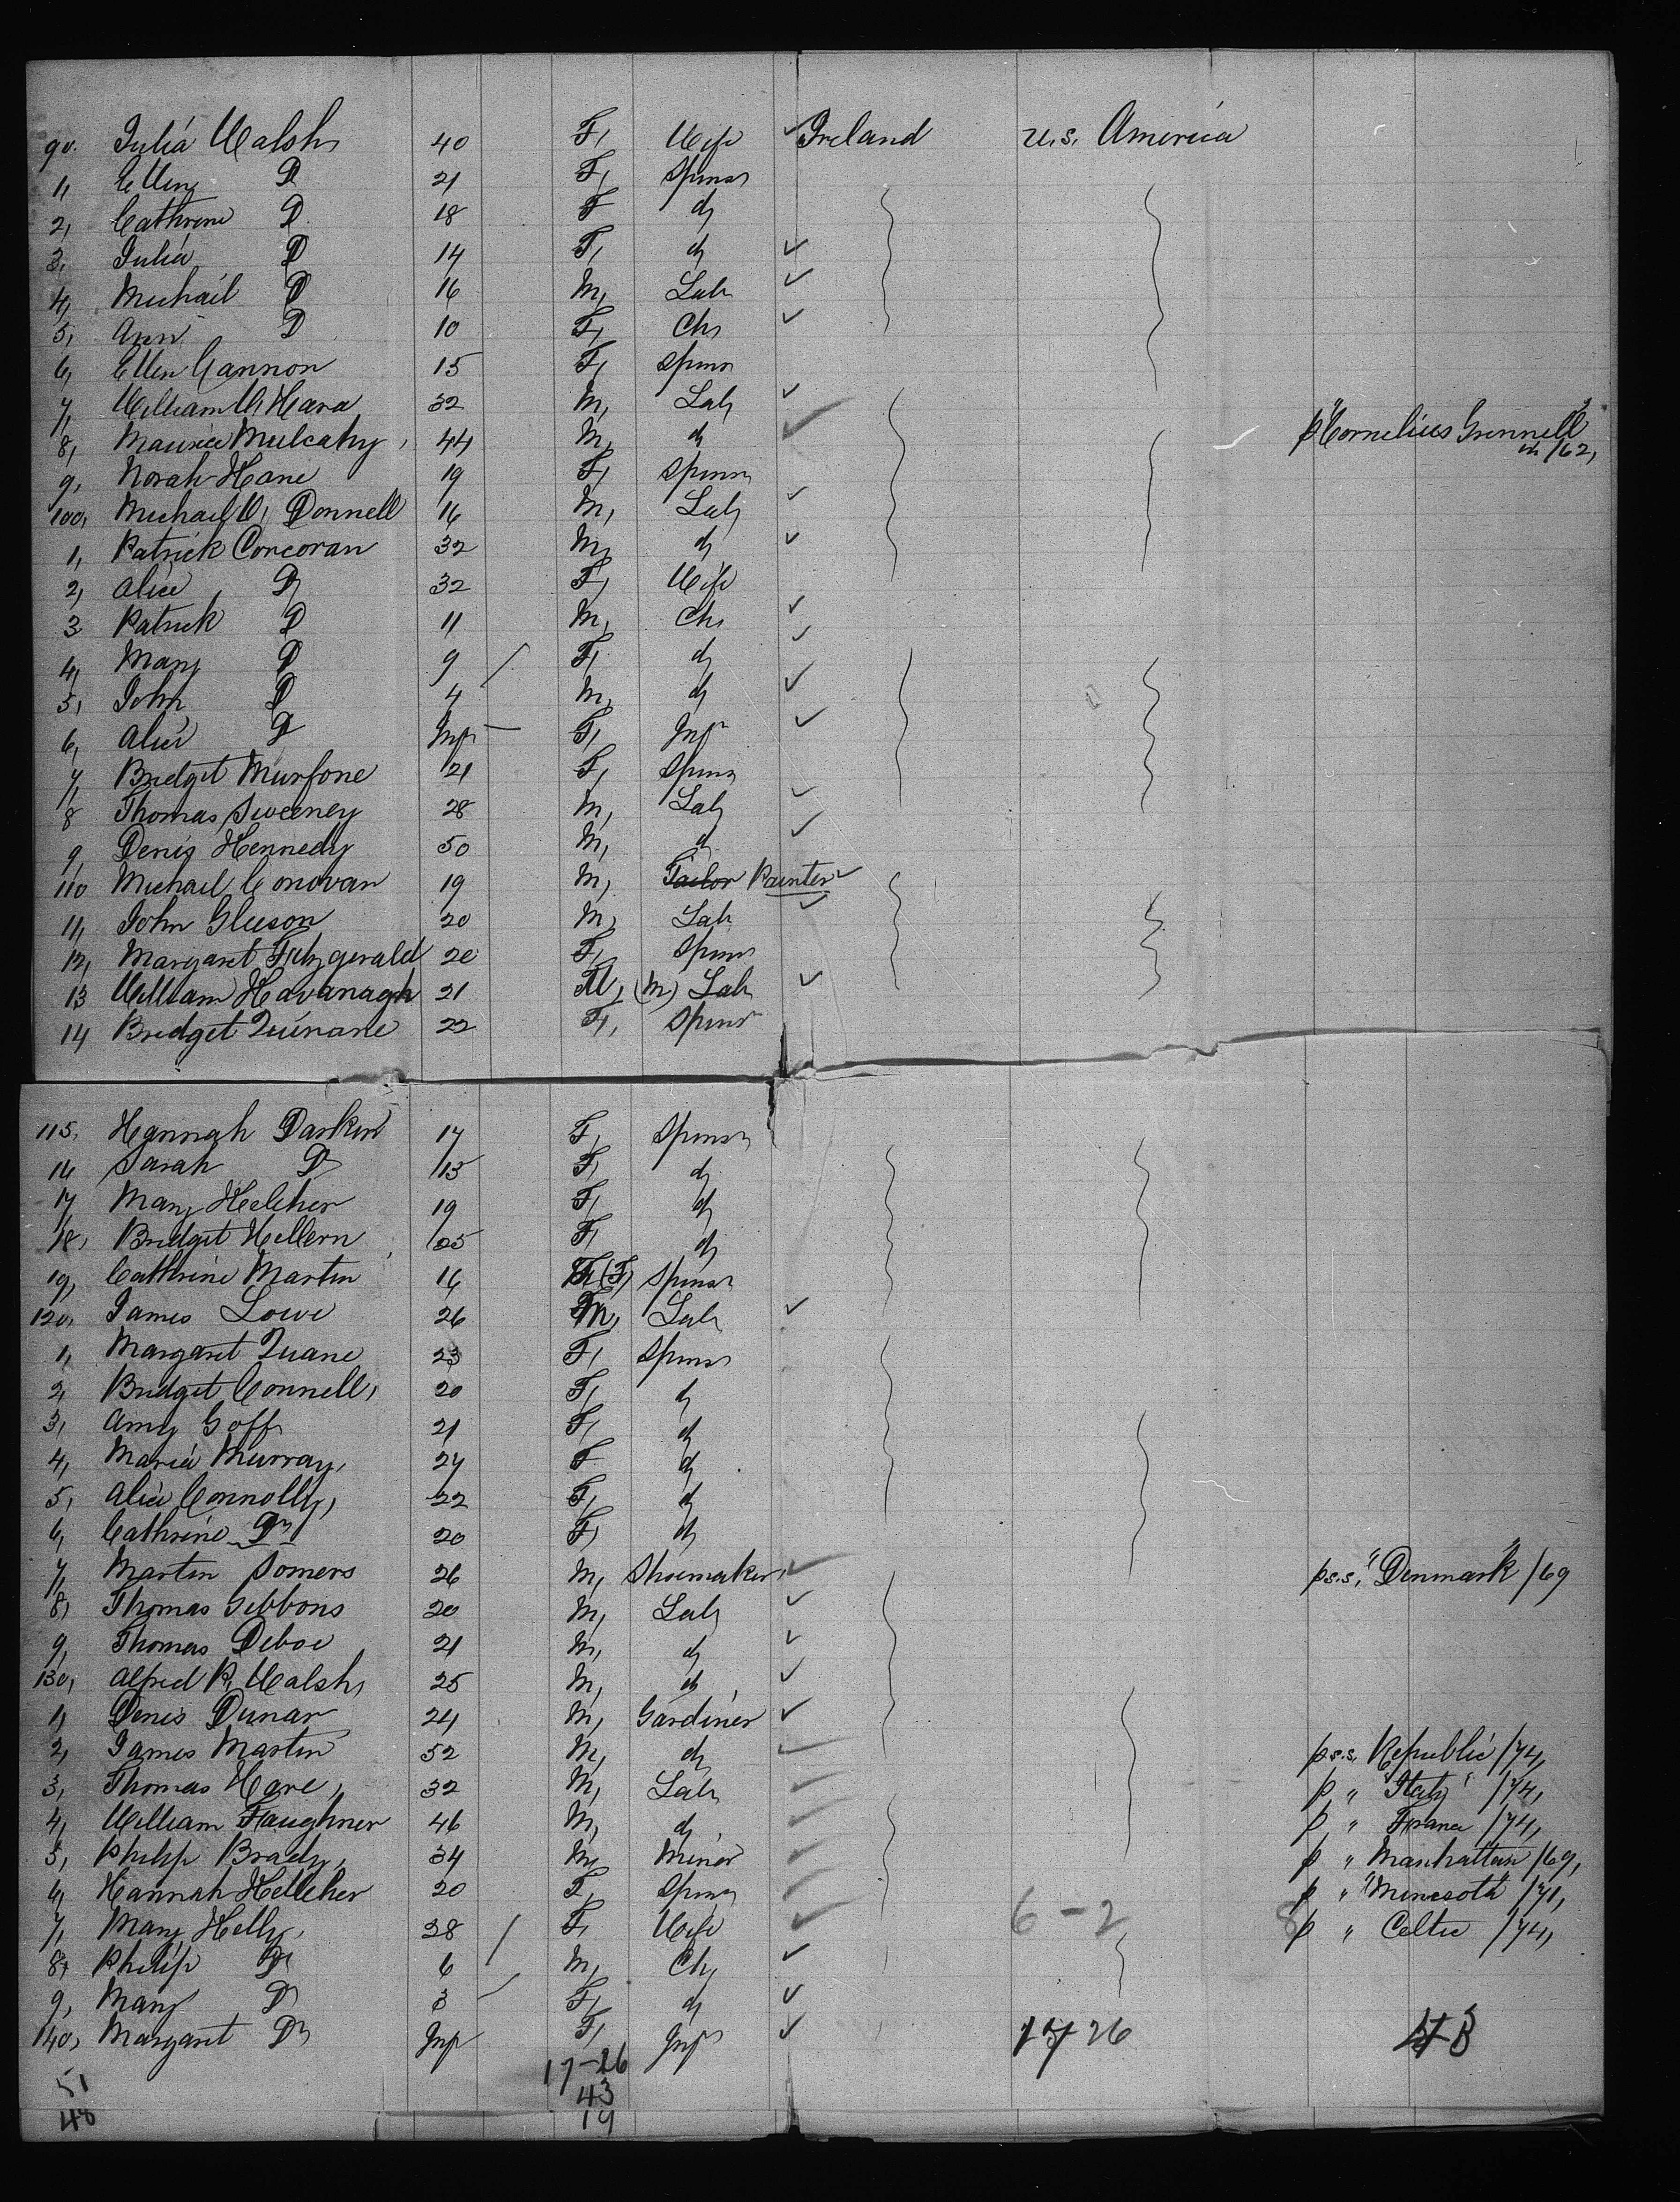 90. Julia Walsh 40 F, Wife Ireland U.S. America
1, Ellen D 21 F, Spinsr
2, Cathrine D 18 F d
3, Julia D 14 F, d
4, Michail D 16 M, Labr
5, Ann D 10 F, Ch,
6, Ellen Cannon 15 F, Spinsr
7, William O'Hara 32 M, Labr
8, Maurice Mulcahy, 44 M, d p "Cornelius Grennell"
in /62,
9, Norah Hane 19 F, Spinsr
100, Michail O, Donnell 16 M, Labr
1, Patrick Corcoran 32 M, d
2, Alice D 32 F, Wife
3 Patrick D 11 M, Ch,
4, Mary D 9 F, d
5, John D 4 M, d
6, Alice D Inft F, Inft
7, Bridget Murfone 21 F, Spinsr
8 Thomas Sweeney 28 M, Labr
9, Denis Kennedy 50 M, d
110 Michail Conovan 19 M, Tailor Painter
11, John Gleeson 20 M, Labr
12, Margaret Fitzgerald 20 F, Spinsr
13 William Kavanagh 21 M, (M) Labr
14 Bridget Quinane 22 F, Spinsr
115, Hannah Darkin 17 F, Spinsr
16 Sarah D 15 F, d
17 Mary Kelcher 19 F, d
18, Bridget Kellern 25 F, d
19, Cathrine Martin 16 (F) Spinsr
120, James Lowe 26 M, Labr
1, Margaret Quane 23 F, Spinsr
2, Bridget Connell, 20 F, d
3, Amy Goff 21 F, d
4, Maria Murray, 27 F d
5, Alice Connolly, 22 F, d
6, Cathrine Do 20 F, d
7, Martin Somers 26 M, Shoemaker, p s.s. "Denmark" /69
8, Thomas Gibbons 20 M, Labr
9, Thomas Deboe 21 M, d
130, Alfred R, Walsh, 25 M, d
1, Denis Dunar 24 M, Gardiner
2, James Martin 52 M, d p s.s. Republic /74,
3, Thomas Hare, 32 M, Labr p " "Italy" /74,
4, William Faughner 46 M, d p " France /74,
5, Philip Brady, 34 M, Miner p " Manhattan /69,
6, Hannah Kelleher 20 F, Spinsr p " "Minesota" /71,
7, Mary Kelly, 28 F, Wife 6-2 8 p " Celtic /74,
8, Philip D 6 M, Ch,
9, Mary D 3 F, d
140, Margaret Do Inft F, Inft 17 26
51 17-26
43
48 19